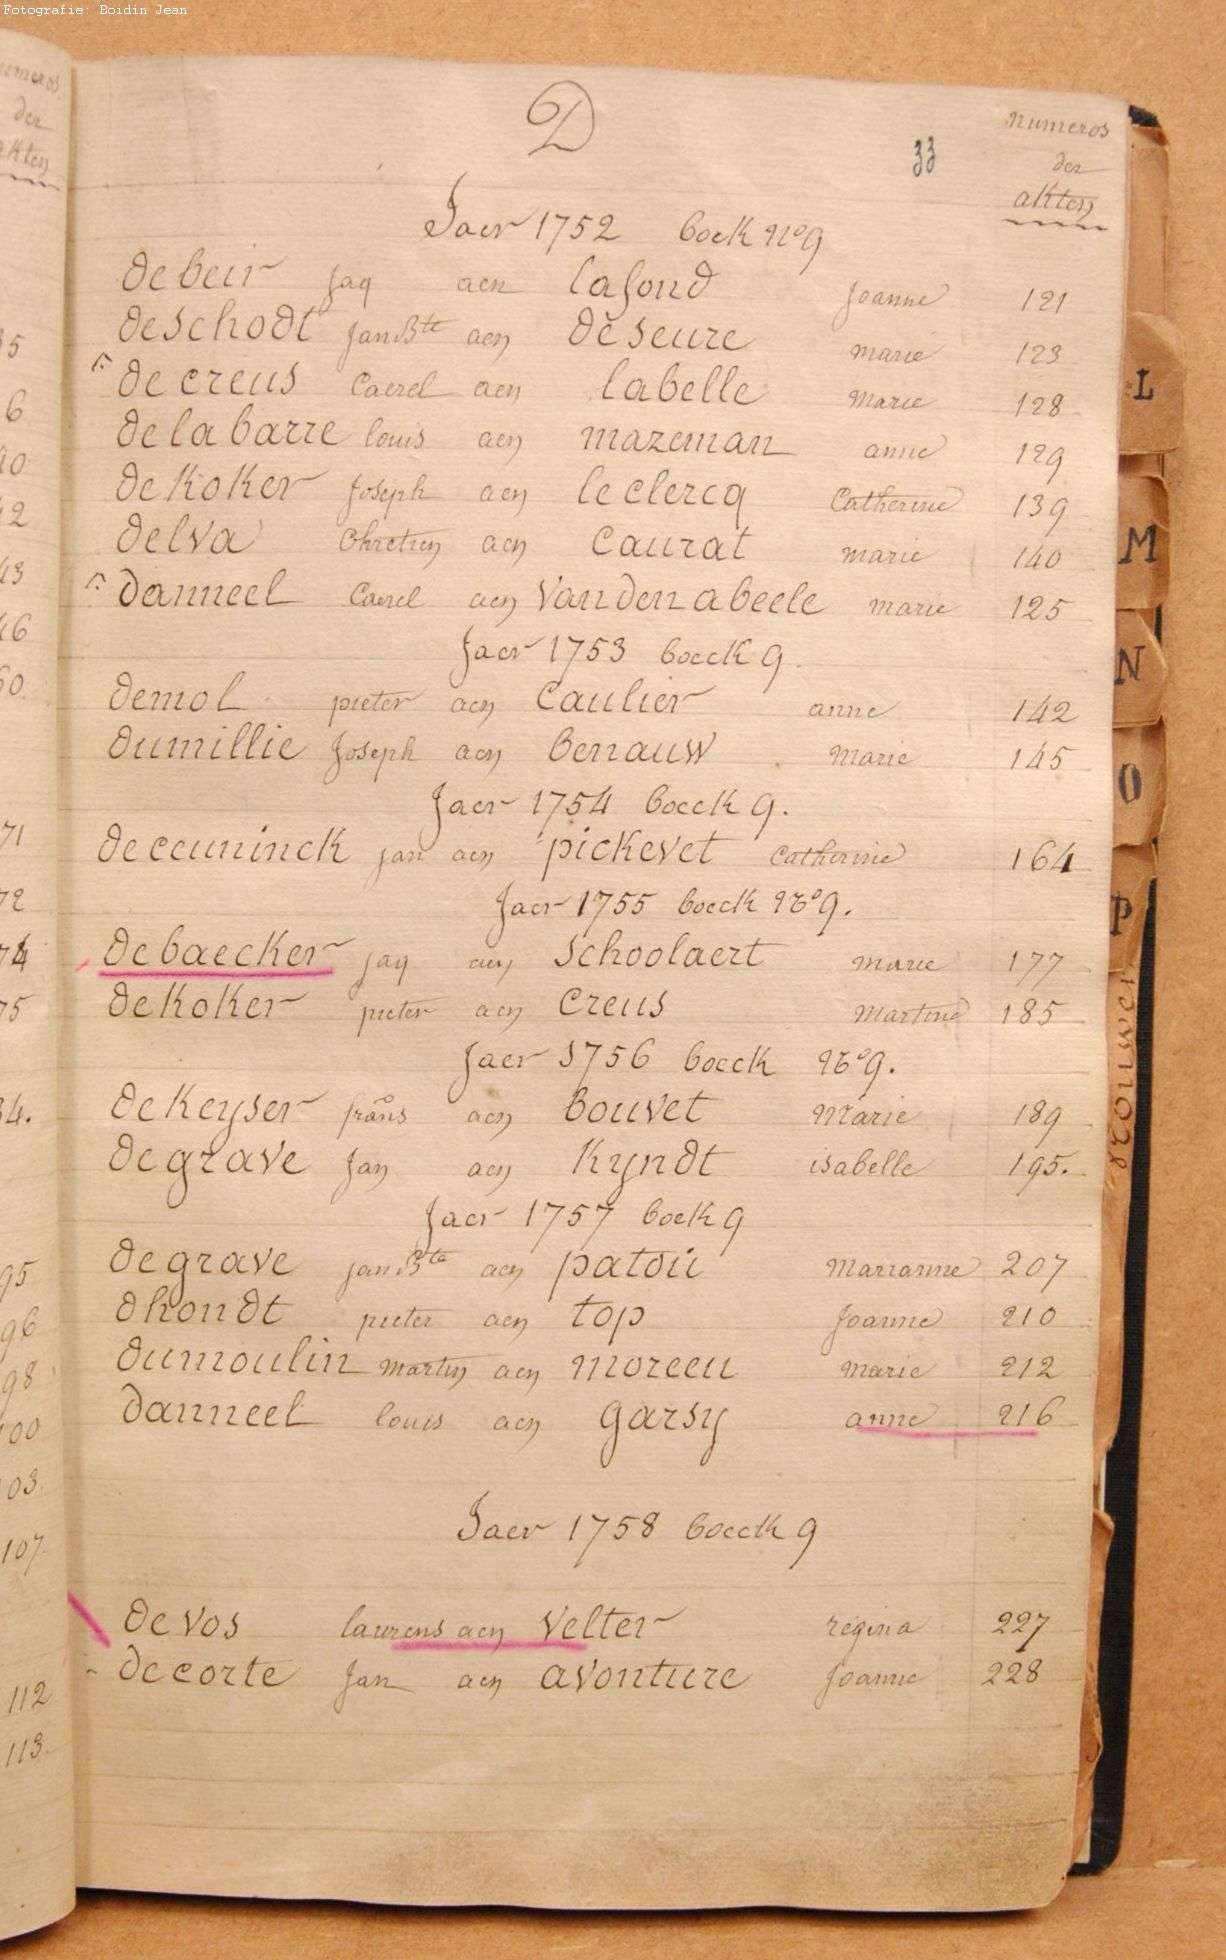 Fotografie: Boidin Jean
D
33
numeros
der
akten
Jaer 1752 boek Nº 9
de beir jaq aen lafond joanne 121
deschodt jan Bte aen deseure marie 123
de creus Carel aen labelle marie 128
de la barre louis aen mazeman anne 129
de koker joseph aen leclercq Catherine 139
delva Chretien aen Caurat marie 140
danneel Carel aen Vanden abeele marie 125
Jaer 1753 boeck 9.
demol pieter aen Caulier anne 142
dumillie joseph aen benauw marie 145
Jaer 1754 boeck 9.
de ceuninck jan aen pickevet catherine 164
Jaer 1755 boeck Nº 9.
de baecker jaq aen schoolaert marie 177
de koker pieter aen Creus martine 185
Jaer 1756 boeck Nº 9.
de keyser frans aen bouvet marie 189
de grave jan aen kyndt isabelle 195.
Jaer 1757 boek 9
de grave jan Bte aen patou marianne 207
dhondt pieter aen top joanne 210
dumoulin martin aen moreeu marie 212
danneel louis aen garsy anne 216
Jaer 1758 boeck 9
de vos laurens aen velter regina 227
de corte jan aen avonture joanne 228
numeros
der
akten
35
6
90
42
43
46
60.
71
72
74
75
84.
95
96
98
100
103.
107.
112
113.
L
M
N
O
P